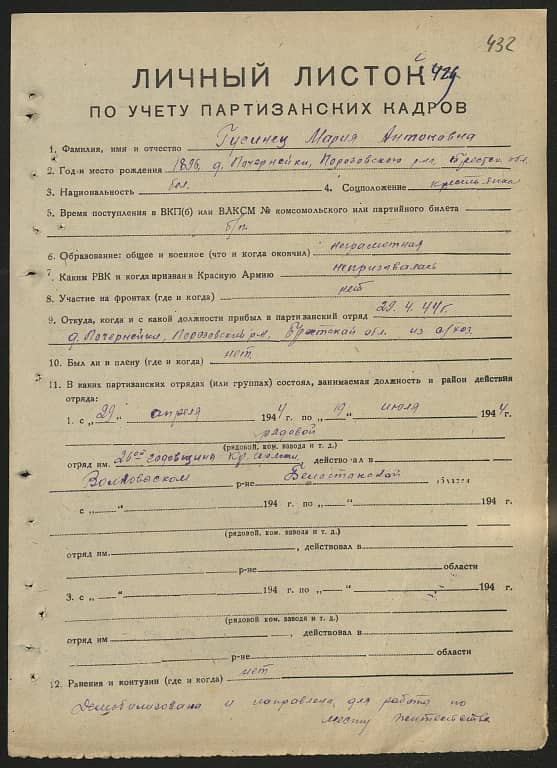 432
ЛИЧНЫЙ ЛИСТОК 429
ПО УЧЕТУ ПАРТИЗАНСКИХ КАДРОВ
1. Фамилия, имя и отчество Гусинец Мария Антоновна
2. Год и место рождения 1896, д. Почернейки, Порозовского р-на, Брестск. обл.
3. Национальность бел. 4. Соцположение крестьянка
5. Время поступления в ВКП(б) или ВЛКСМ № комсомольского или партийного билета
б/п.
6. Образование: общее и военное (что и когда окончил) неграмотная
7. Каким РВК и когда призван в Красную Армию непризывалась
8. Участие на фронтах (где и когда) нет
9. Откуда, когда и с какой должности прибыл в партизанский отряд 29.4.44г.
д. Почернейки, Порозовский р-н, Брестской обл. из с/хоз
10. Был ли в плену (где и когда) нет
11. В каких партизанских отрядах (или группах) состоял, занимаемая должность и район действия
отряда:
1. с „29“ апреля 1944 г. по „19“ июля 1944 г.
рядовой
(рядовой, ком. взвода и т. д.)
отряд им. 26ой годовщина Кр. Армии, действовал в
Волковыском р-не Белостокской области
с „ “ 194 г. по „ “ 194 г.
(рядовой, ком. взвода и т. д.)
отряд им. , действовал в
р-не области
3. с „ “ 194 г. по „ “ 194 г.
(рядовой, ком. взвода и т. д.)
отряд им. , действовал в
р-не области
12. Ранения и контузии (где и когда) нет
Демобилизована и направлена для работы по
месту жительства